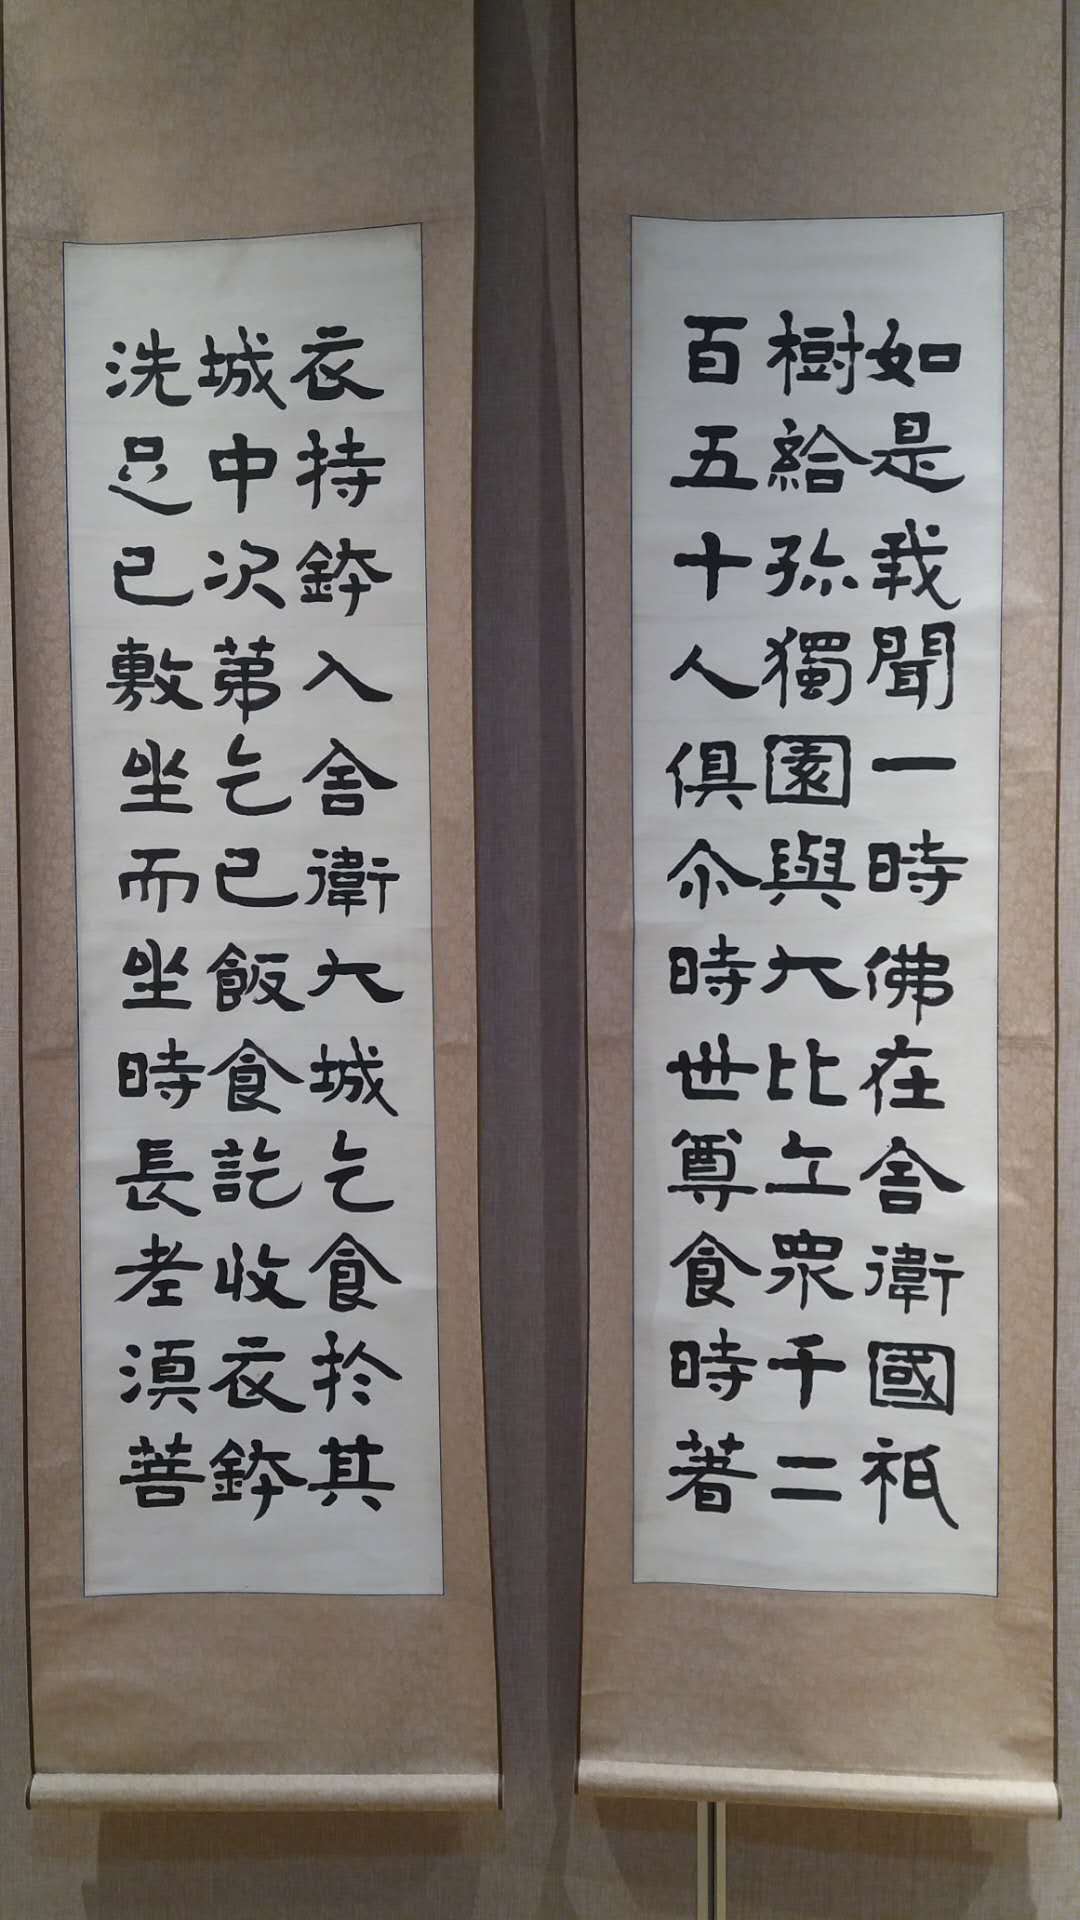 如是我聞一時佛在舍衛國祇
樹給孤獨園與大比丘眾千二
百五十人俱尒時世尊食時著
衣持鉢入舍衛大城乞食於其
城中次苐乞已飯食訖收衣鉢
洗足已敷坐而坐時長老湏菩